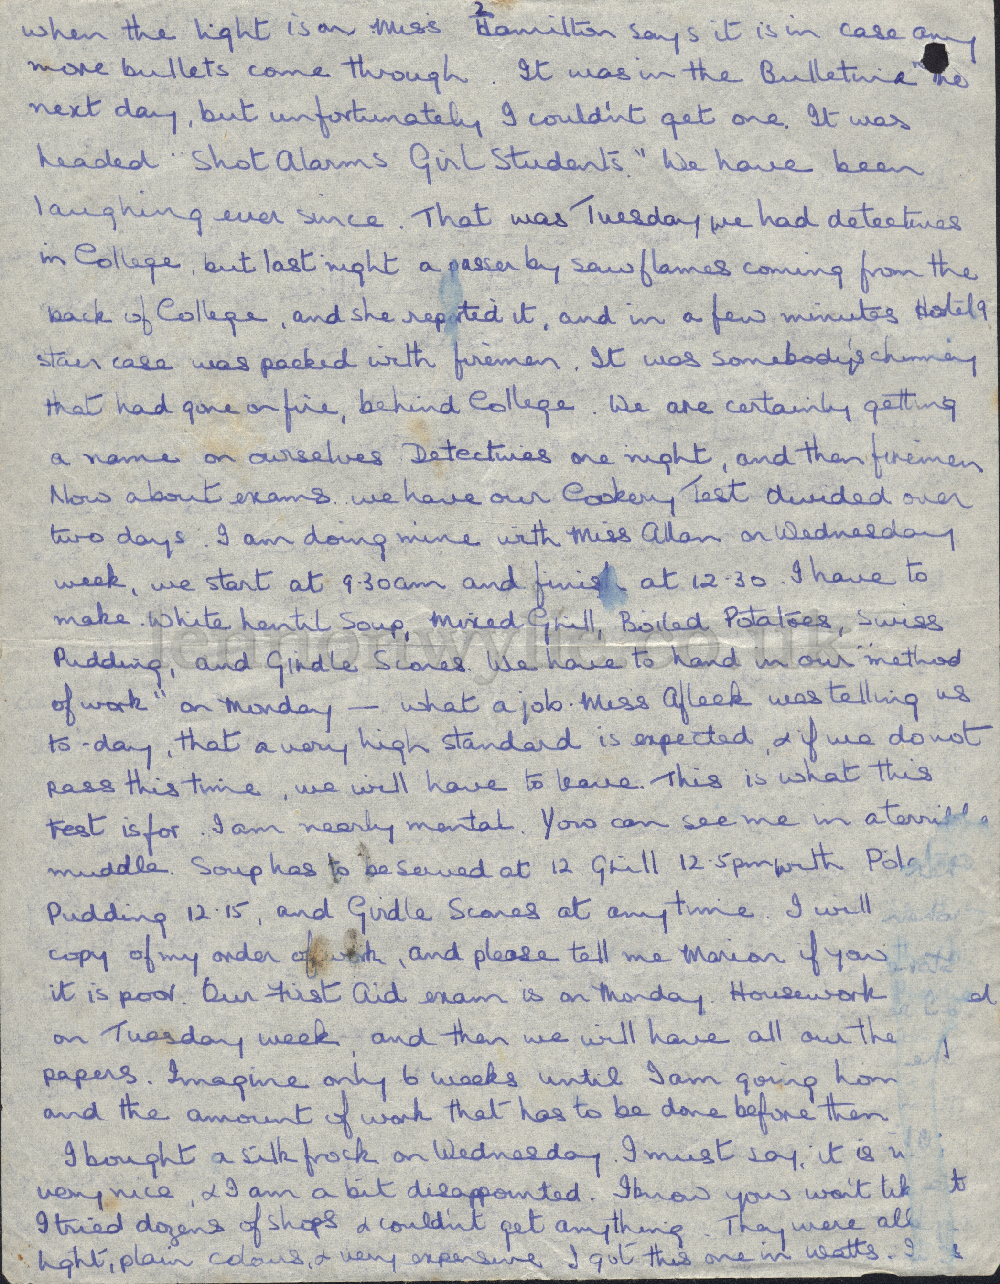 2
when the light is on. Miss Hamilton says it is in case any
more bullets come through. It was in the Bulletin the
next day, but unfortunately I couldn't get one. It was
headed "Shot Alarms Girl Students." We have been
laughing ever since. That was Tuesday we had detectives
in College, but last night a passer by saw flames coming from the
back of College, and she reported it, and in a few minutes Hostel 9
stair case was packed with firemen. It was somebody's chimney
that had gone on fire, behind College. We are certainly getting
a name on ourselves Detectives one night, and then firemen
Now about exams. we have our Cookery Test divided over
two days. I am doing mine with Miss Allan on Wednesday
week, we start at 9.30am and finish at 12.30. I have to
make White Lentil Soup, Mixed Grill, Boiled Potatoes, Swiss
Pudding, and Girdle Scones. We have to hand in our "method
of work" on Monday — what a job. Miss Afleck was telling us
to-day, that a very high standard is expected, & if we do not
pass this time, we will have to leave. This is what this
Test is for. I am nearly mental. You can see me in a terrible
muddle. Soup has to be served at 12 Grill 12.5pm with
Pudding 12.15, and Girdle Scones at any time. I will
copy of my order of work, and please tell me Marion if you
it is poor. Our First Aid exam is on Monday. Housework
on Tuesday week, and then we will have all our the
papers. Imagine only 6 weeks until I am going hom
and the amount of work that has to be done before then
I bought a silk frock on Wednesday. I must say, it is n
very nice, & I am a bit disappointed. I know you won't lik t
I tried dozens of shops & couldn't get anything. They were all
light, plain colours, & very expensive. I got this one in Watts. I s
lennonwylie.co.uk